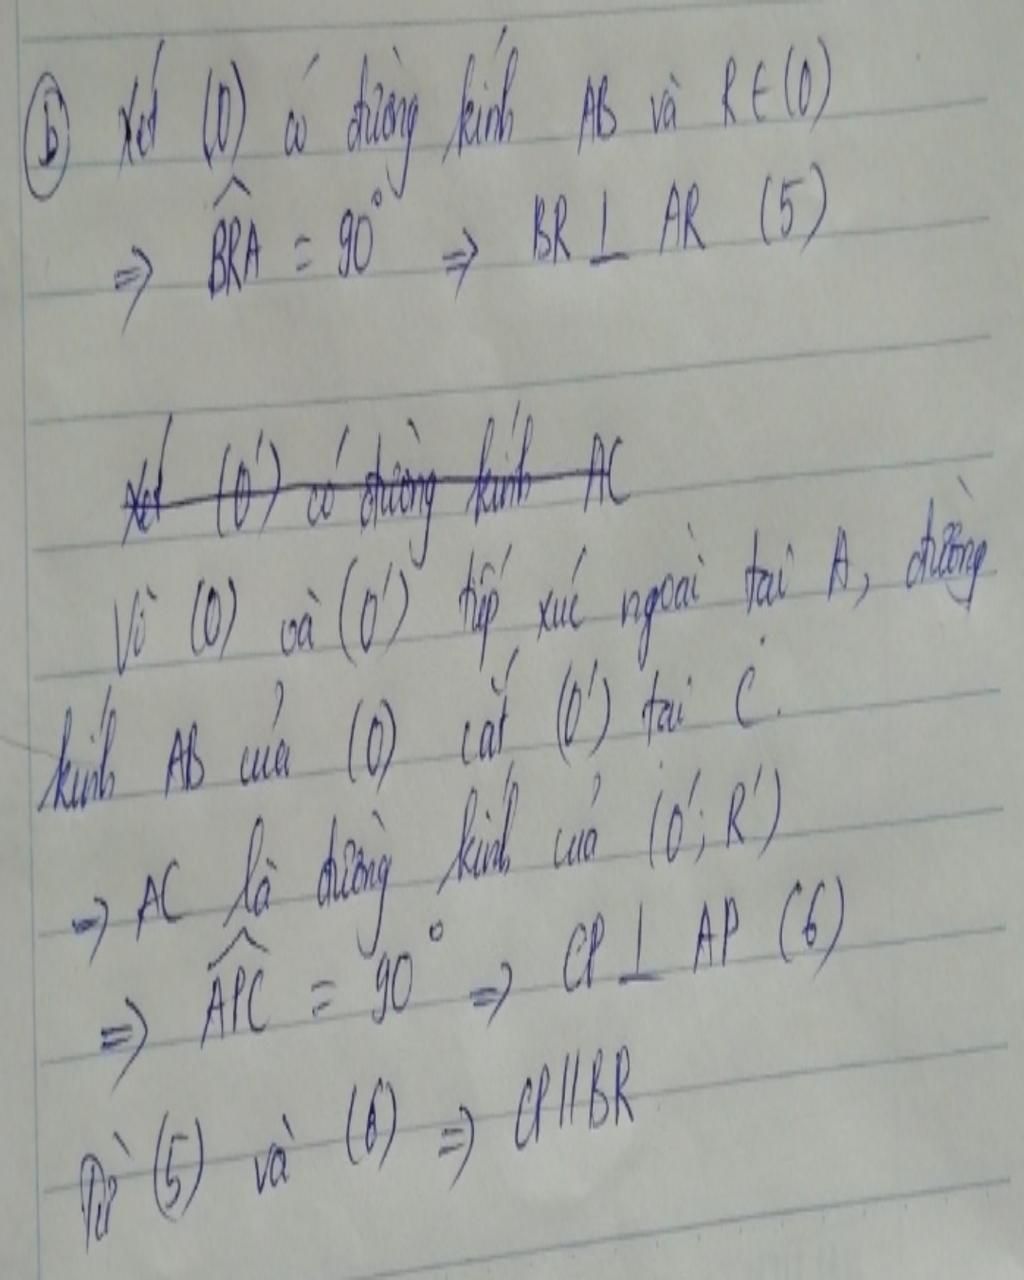 b Xét (O) có đường kính AB và R ∈ (O)
⇒ BRA = 90° ⇒ BR ⊥ AR (5)
Xét (O') có đường kính AC
Vì (O) và (O') tiếp xúc ngoài tại A, đường
kính AB của (O) cắt (O') tại C.
⇒ AC là đường kính của (O'; R')
⇒ APC = 90° ⇒ CP ⊥ AP (6)
Từ (5) và (6) ⇒ CP // BR